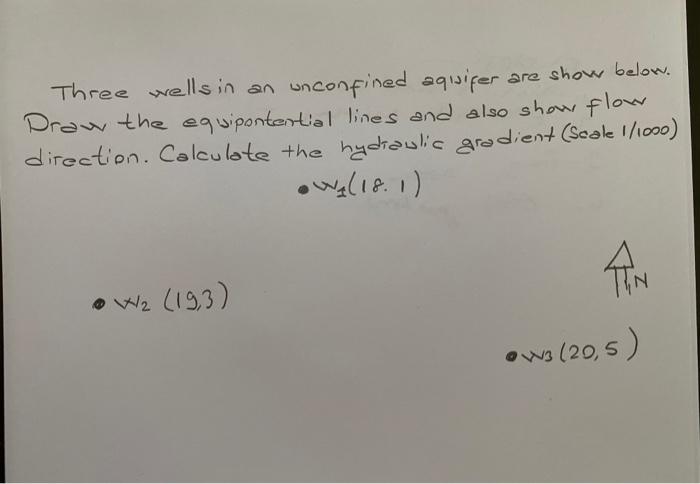 Three wells in an unconfined aquifer are show below.
Draw the equipontential lines and also show flow
direction. Calculate the hydraulic gradient (Scale 1/1000)
W1(18.1)
N
W2 (19,3)
W3 (20,5)